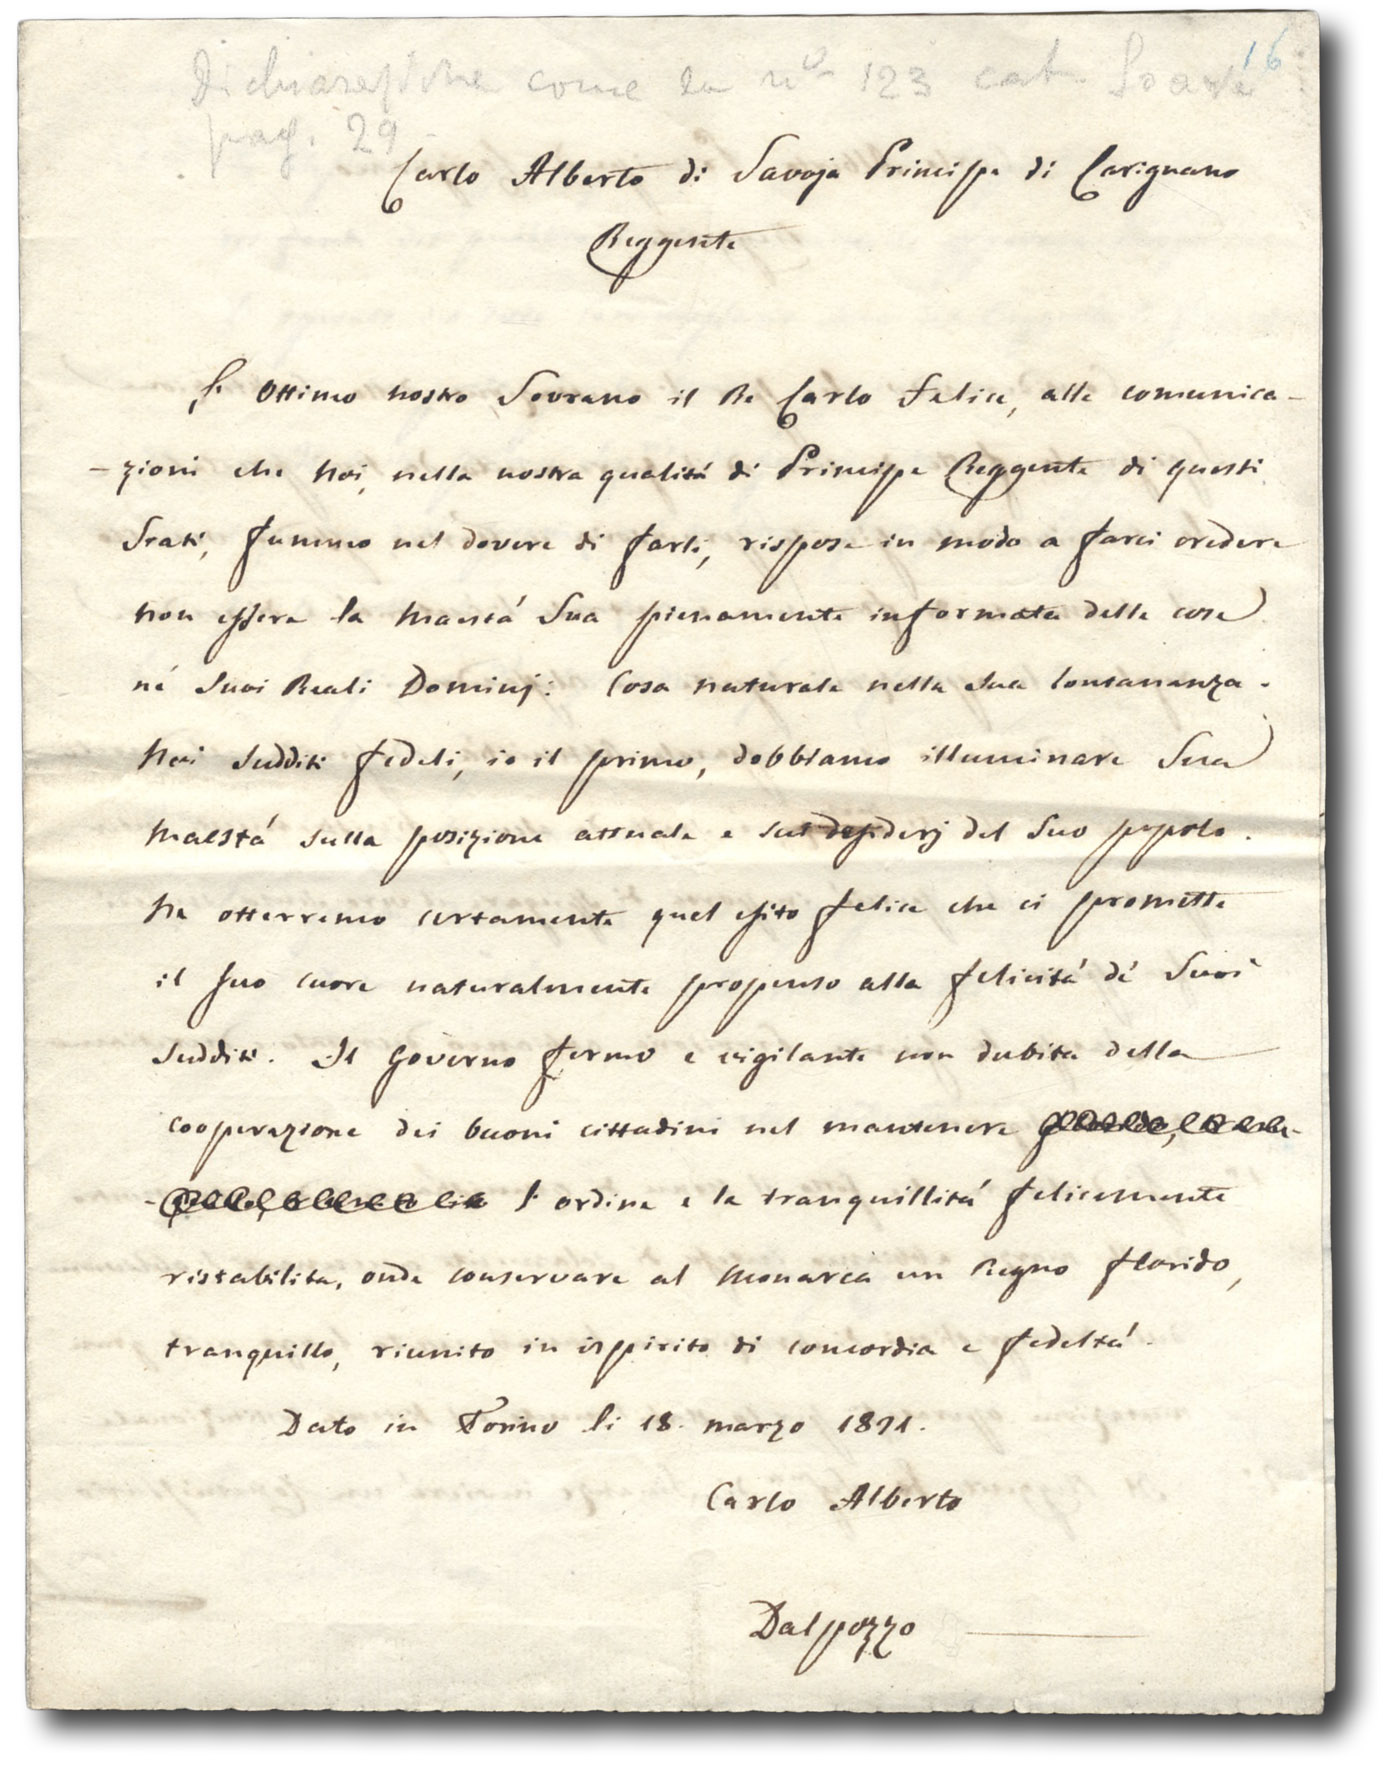 16
Dichiarazione come da nº 123 cat.
pag. 29
Carlo Alberto di Savoja Principe di Carignano
Reggente
L'Ottimo nostro Sovrano il Re Carlo Felice, alle comunica-
-zioni che Noi, nella nostra qualitá di Principe Reggente di questi
Stati, fummo nel dovere di farli, rispose in modo a farci credere
non essere la Maestá Sua pienamente informata delle cose
né Suoi Reali Dominj: Cosa naturale nella Sua lontananza.
Noi Sudditi fedeli, io il primo, dobbiamo illuminare Sua
Maestá sulla posizione attuale e sui desiderj del Suo popolo.
Ne otterremo certamente quel esito felice che ci promette
il Suo cuore naturalmente propenso alla felicitá dé Suoi
Sudditi. Il Governo fermo e vigilante non dubita della
cooperazione dei buoni cittadini nel mantenere
l'ordine e la tranquillitá felicemente
ristabilita, onde conservare al Monarca un Regno florido,
tranquillo, riunito in ispirito di concordia e fedeltá.
Dato in Torino li 18. marzo 1821.
Carlo Alberto
Dalpozzo